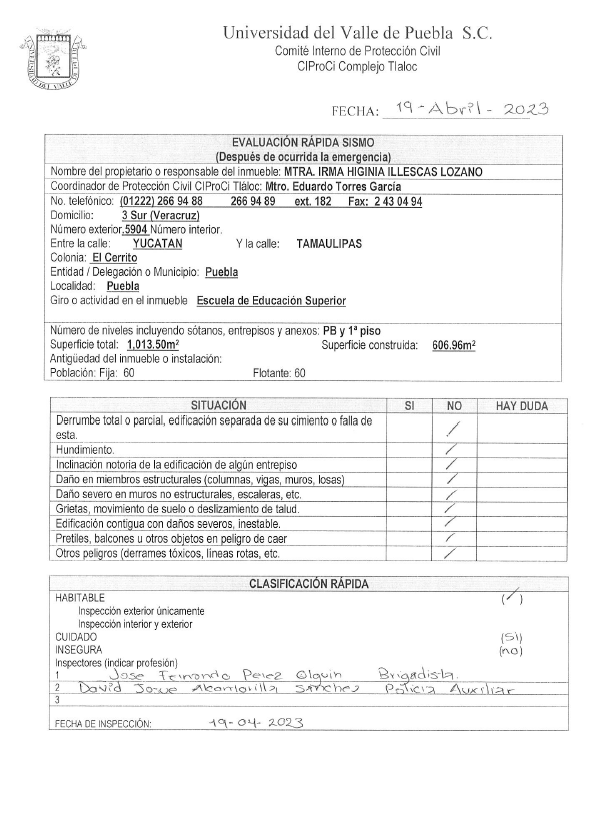 Universidad del Valle de Puebla S.C.
Comité Interno de Protección Civil
CIProCi Complejo Tlaloc
FECHA: 19-Abril-2023
EVALUACIÓN RÁPIDA SISMO
(Después de ocurrida la emergencia)
Nombre del propietario o responsable del inmueble: MTRA. IRMA HIGINIA ILLESCAS LOZANO
Coordinador de Protección Civil CIProCi Tláloc: Mtro. Eduardo Torres García
No. telefónico: (01222) 266 94 88 266 94 89 ext. 182 Fax: 2 43 04 94
Domicilio: 3 Sur (Veracruz)
Número exterior,5904 Número interior.
Entre la calle: YUCATAN Y la calle: TAMAULIPAS
Colonia: El Cerrito
Entidad / Delegación o Municipio: Puebla
Localidad: Puebla
Giro o actividad en el inmueble Escuela de Educación Superior
Número de niveles incluyendo sótanos, entrepisos y anexos: PB y 1ª piso
Superficie total: 1,013.50m² Superficie construida: 606.96m²
Antigüedad del inmueble o instalación:
Población: Fija: 60 Flotante: 60
SITUACIÓN SI NO HAY DUDA
Derrumbe total o parcial, edificación separada de su cimiento o falla de
esta.
Hundimiento.
Inclinación notoria de la edificación de algún entrepiso
Daño en miembros estructurales (columnas, vigas, muros, losas)
Daño severo en muros no estructurales, escaleras, etc.
Grietas, movimiento de suelo o deslizamiento de talud.
Edificación contigua con daños severos, inestable.
Pretiles, balcones u otros objetos en peligro de caer
Otros peligros (derrames tóxicos, líneas rotas, etc.
CLASIFICACIÓN RÁPIDA
HABITABLE (/)
Inspección exterior únicamente
Inspección interior y exterior
CUIDADO (SI)
INSEGURA (no)
Inspectores (indicar profesión)
1 Jose Fernando Perez Olguin Brigadista.
2 David Josue Sánchez Policia Auxiliar
3
FECHA DE INSPECCIÓN: 19-04-2023